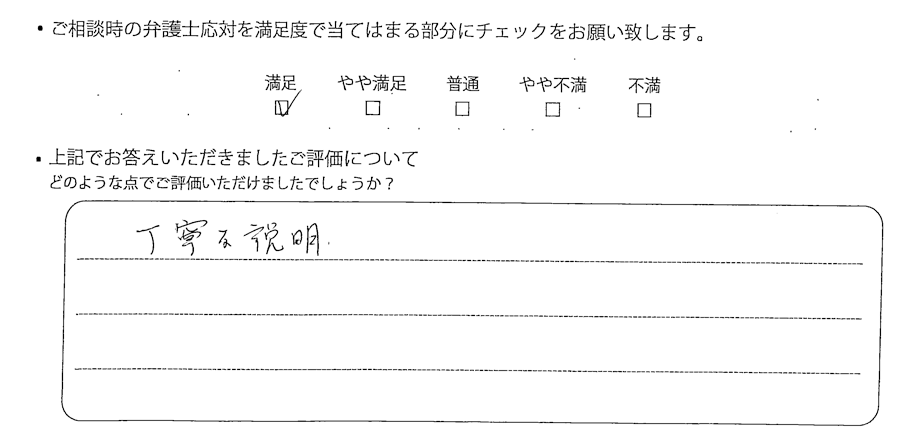 ・ご相談時の弁護士応対を満足度で当てはまる部分にチェックをお願い致します。
満足 やや満足 普通 やや不満 不満
☑ □ □ □ □
・上記でお答えいただきましたご評価について
どのような点でご評価いただけましたでしょうか？
丁寧な説明.